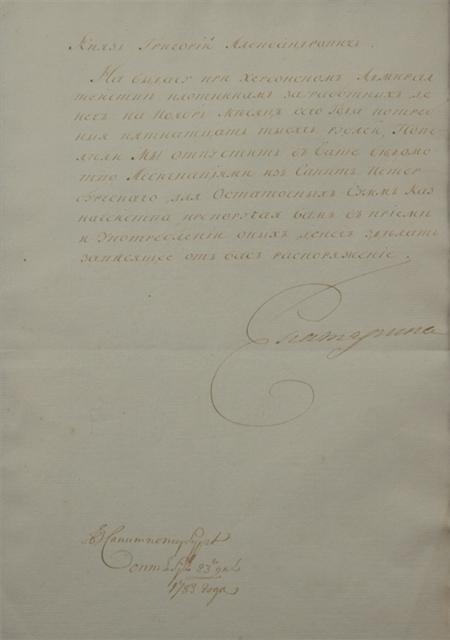 Князь Григорій Александровичь.
На выдачу при Херсонскомъ Адмирал
тействѣ плотникамъ заработныхъ де
негъ на Ноябрь Мѣсяцъ сего Года потреб
ныя пятнатцать тысячь рублей, Пове
лели Мы отпустить въ
изъ Санктъ Петер
бургскаго для Остаточныхъ Суммъ Каз
начейства препоручая вамъ въ пріемѣ
и Употребленіи оныхъ денегъ здѣлать
зависящее отъ васъ распоряженіе.
Екатерина
Въ Санктпетербургѣ
Сентября 23го дня
1783 года